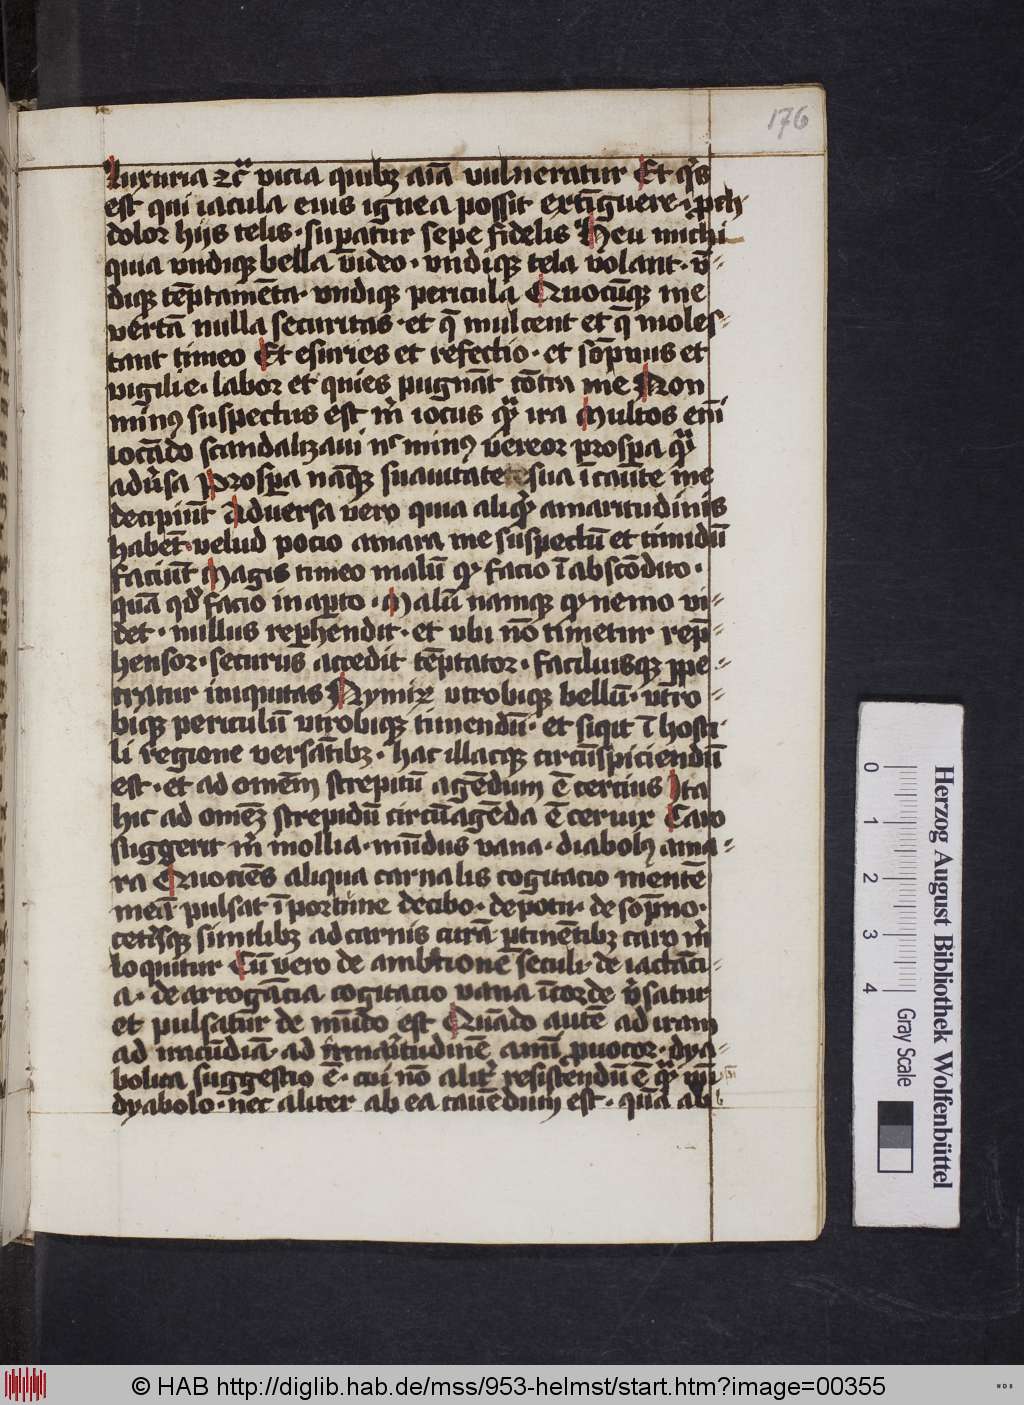 176
luxuria ⁊cͣ vicia quibꝫ aīa vulneratur Et qͥs
est qui iacula eius ignea possit extīguere · ꝓch
dolor hijs telis · suꝑatur sepe fidelis Heu michi
quia vndiqꝫ bella video · vndiqꝫ tela volant · v̄⸗
diqꝫ tēptamēta · vndiqꝫ pericula Quocūqꝫ me
vertā nulla securitas · et q̄ mulcent et q̄ moles⸗
tant timeo Et esuries et refectio · et sōpnus et
vigilie · labor et quies pugnāt cōtra me Non
minꝰ suspectus est m̄ iocus qͣꝫ ira Multos em̄
iocādo scandalizaui nͨ minꝰ vereor prosꝑa qͣꝫ
adūsa Prosꝑa nāqꝫ suauitate sua īcaute me
decipiūt Aduersa vero quia aliqͣꝫ amaritudinis
habēt · velud pocio amara me suspectū et timidū
faciūt Magis timeo malū qͩ facio ī abscōdito ·
quā qͩ facio in aꝑto · Malū namqꝫ qͩ nemo vi⸗
det · nullus reprehendit · et vbi nō timetur rep̄⸗
hensor · securus accedit tēptator · faciliusqꝫ ꝑpe⸗
tratur iniquitas Nymiꝝ vtrobiqꝫ bellū · vtro⸗
biqꝫ periculū vtrobiqꝫ timendū · et siqͥt ī hosti⸗
li regione versātibꝫ · hac illacqꝫ circūspiciendū
est · et ad omēm strepitū agēdum ē cercius Ita
hic ad omēꝫ strepidū circūagēda ē ceruix Caro
suggerit m̄ mollia · mūdus vana · diabolꝰ ama⸗
ra Quociēs aliqua carnalis cogitacio mentē
meā pulsat īportune de cibo · de potu · de sōpno ·
cetīsqꝫ similibꝫ ad carnis curā ꝑtinētibꝫ caro m̄
loquitur Cū vero de ambitione seculi · de iactāci⸗
a · de arrogācia cogitacio vana ī corde v̄satur
et pulsatur de mūdo est Quādo autē ad iram
ad iracūdiā · ad amaritudinē animi ꝓuocor · dya⸗
bolica suggestio ē · cui nō alit̄ resistendū ē qͣꝫ ip̄i
dyabolo · nec aliter ab ea cauēdum est · quā ab
0 1 2 3 4
Herzog August Bibliothek Wolfenbüttel
Gray Scale
© HAB http://diglib.hab.de/mss/953-helmst/start.htm?image=00355